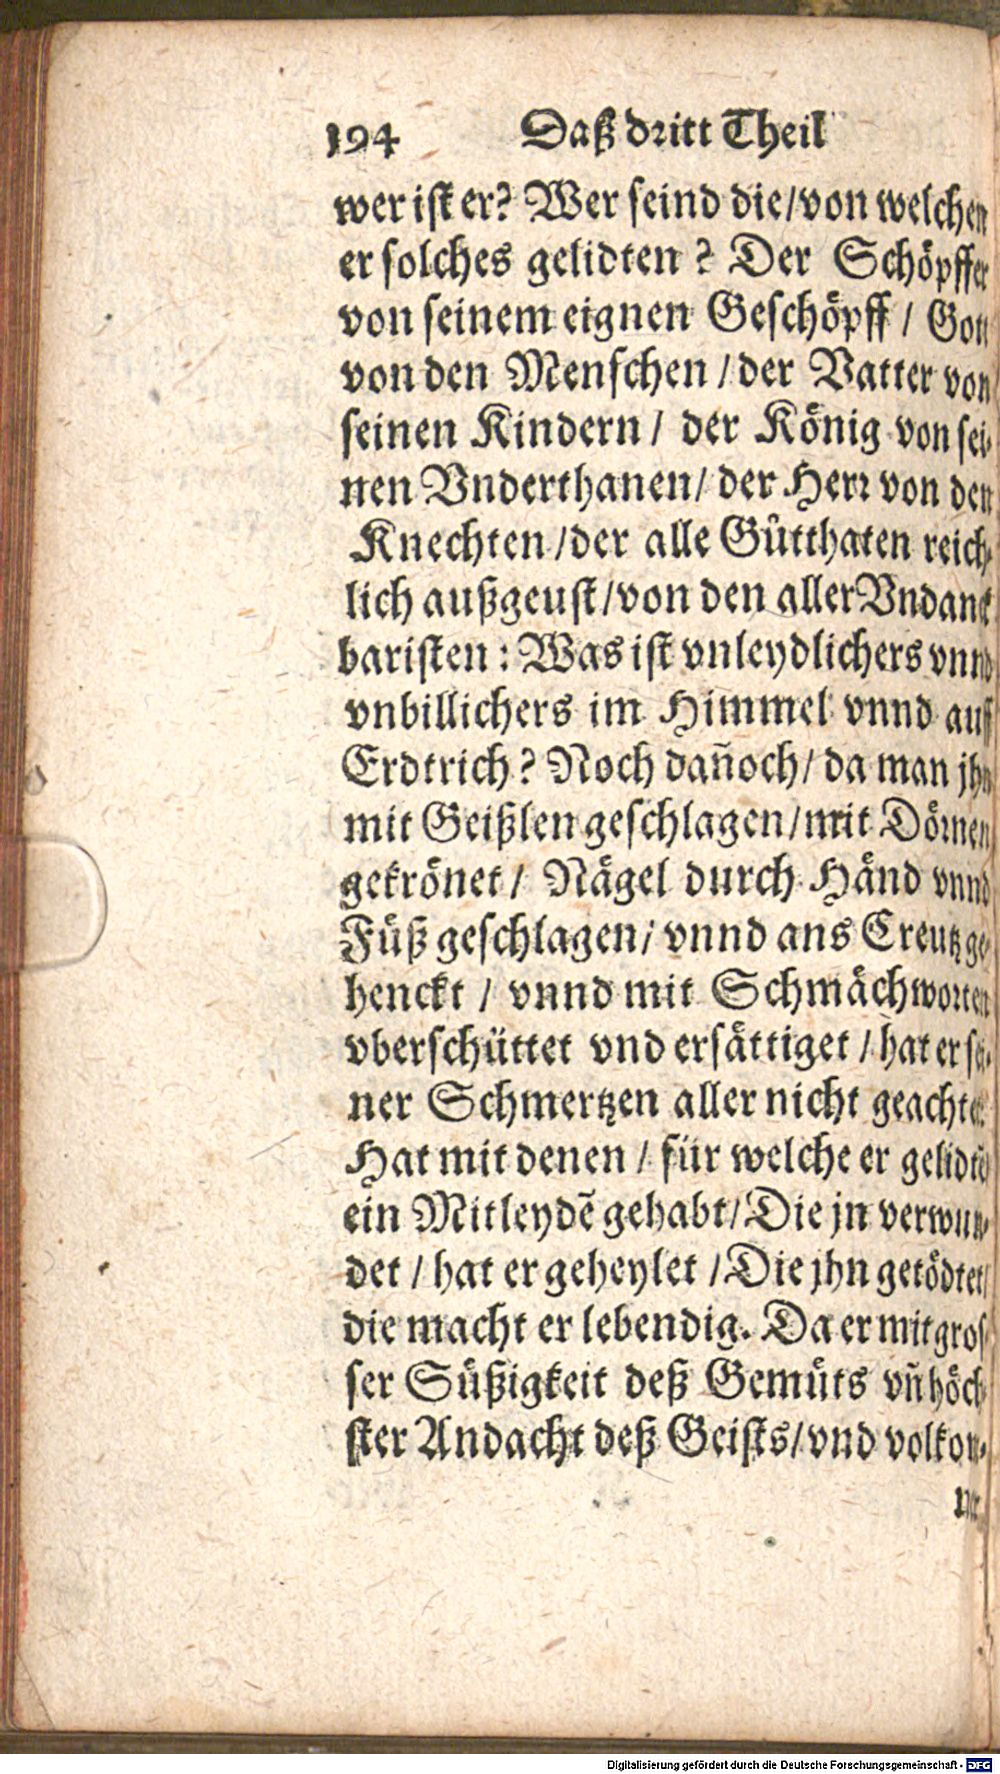 194 Daß dritt Theil
wer ist er? Wer seind die/von welchen
er solches gelidten? Der Schöpffer
von seinem eignen Geschöpff / Gott
von den Menschen / der Vatter von
seinen Kindern / der König von sei-
nen Vnderthanen/ der Herr von den
Knechten /der alle Gůtthaten reich-
lich außgeust/von den aller Vndanck
baristen: Was ist vnleydlichers vnnd
vnbillichers im Himmel vnnd auff
Erdtrich? Noch dañoch/ da man jhn
mit Geißlen geschlagen/mit Dörnen
gekrönet / Nägel durch Händ vnnd
Füß geschlagen/ vnnd ans Creutz ge-
henckt / vnnd mit Schmächworten
vberschüttet vnd ersättiget / hat er sei-
ner Schmertzen aller nicht geachtet.
Hat mit denen / für welche er gelidtē
ein Mitleydē gehabt/ Die jn verwun-
det / hat er geheylet / Die jhn getödtet/
die macht er lebendig. Da er mit gros
ser Süßigkeit deß Gemüts vñ höch
ster Andacht deß Geists/vnd volkom-
Digitalisierung gefördert durch die Deutsche Forschungsgemeinschaft - DFG